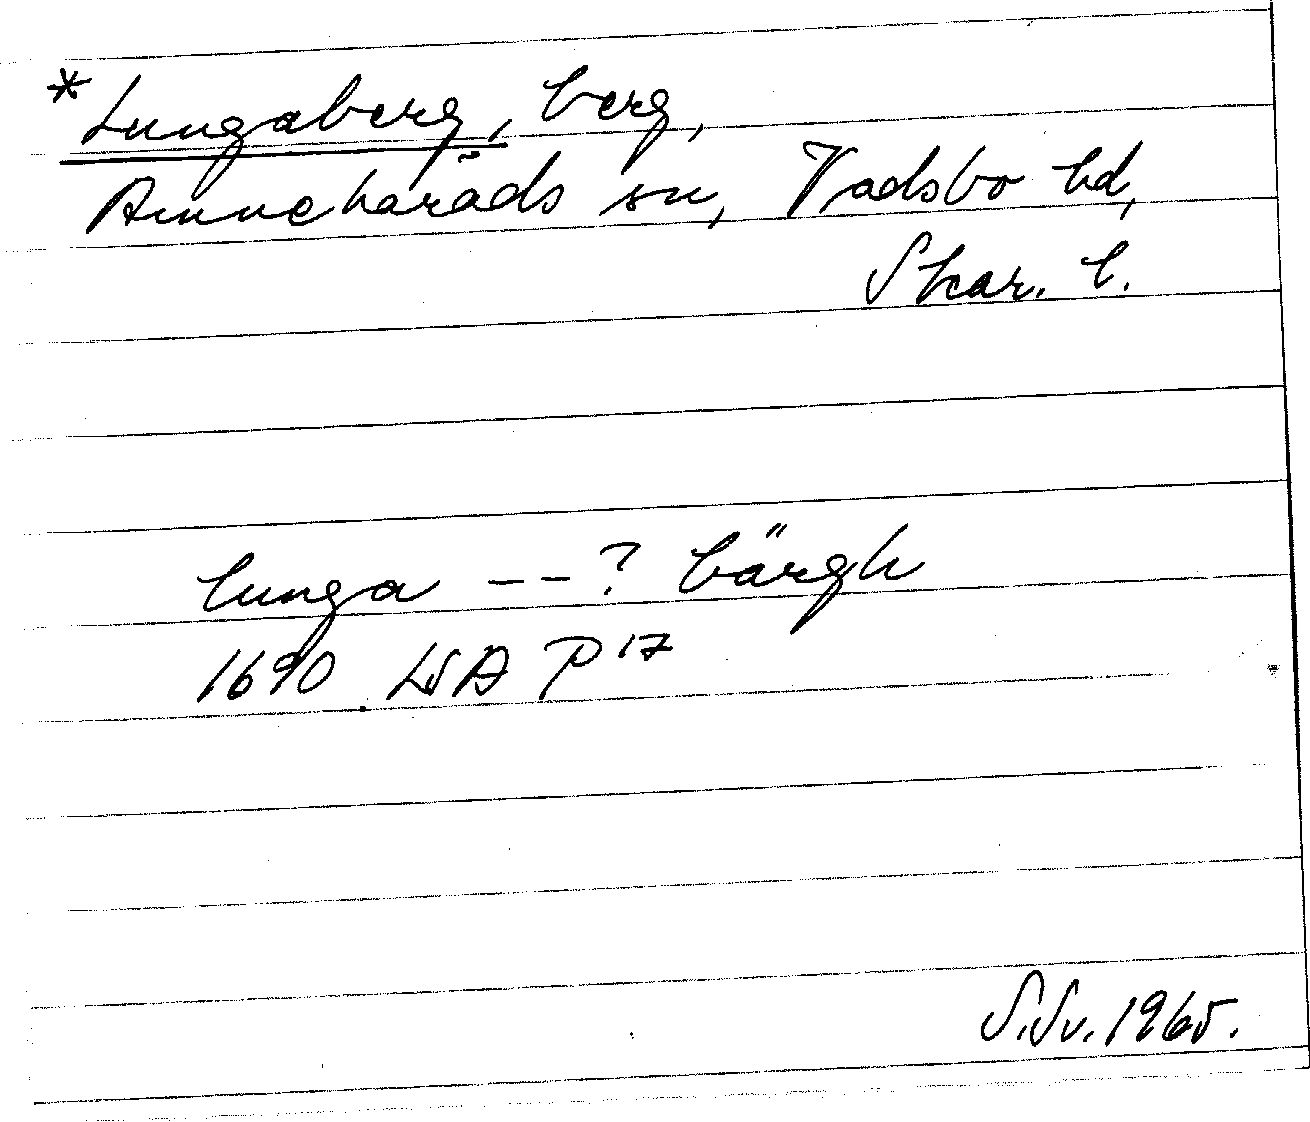 *Lungaberg, berg,
Amnehärads sn, Vadsbo hd,
Skar. l.
lunga --? bärgh
1690 LSA P17
S.Sv. 1965.